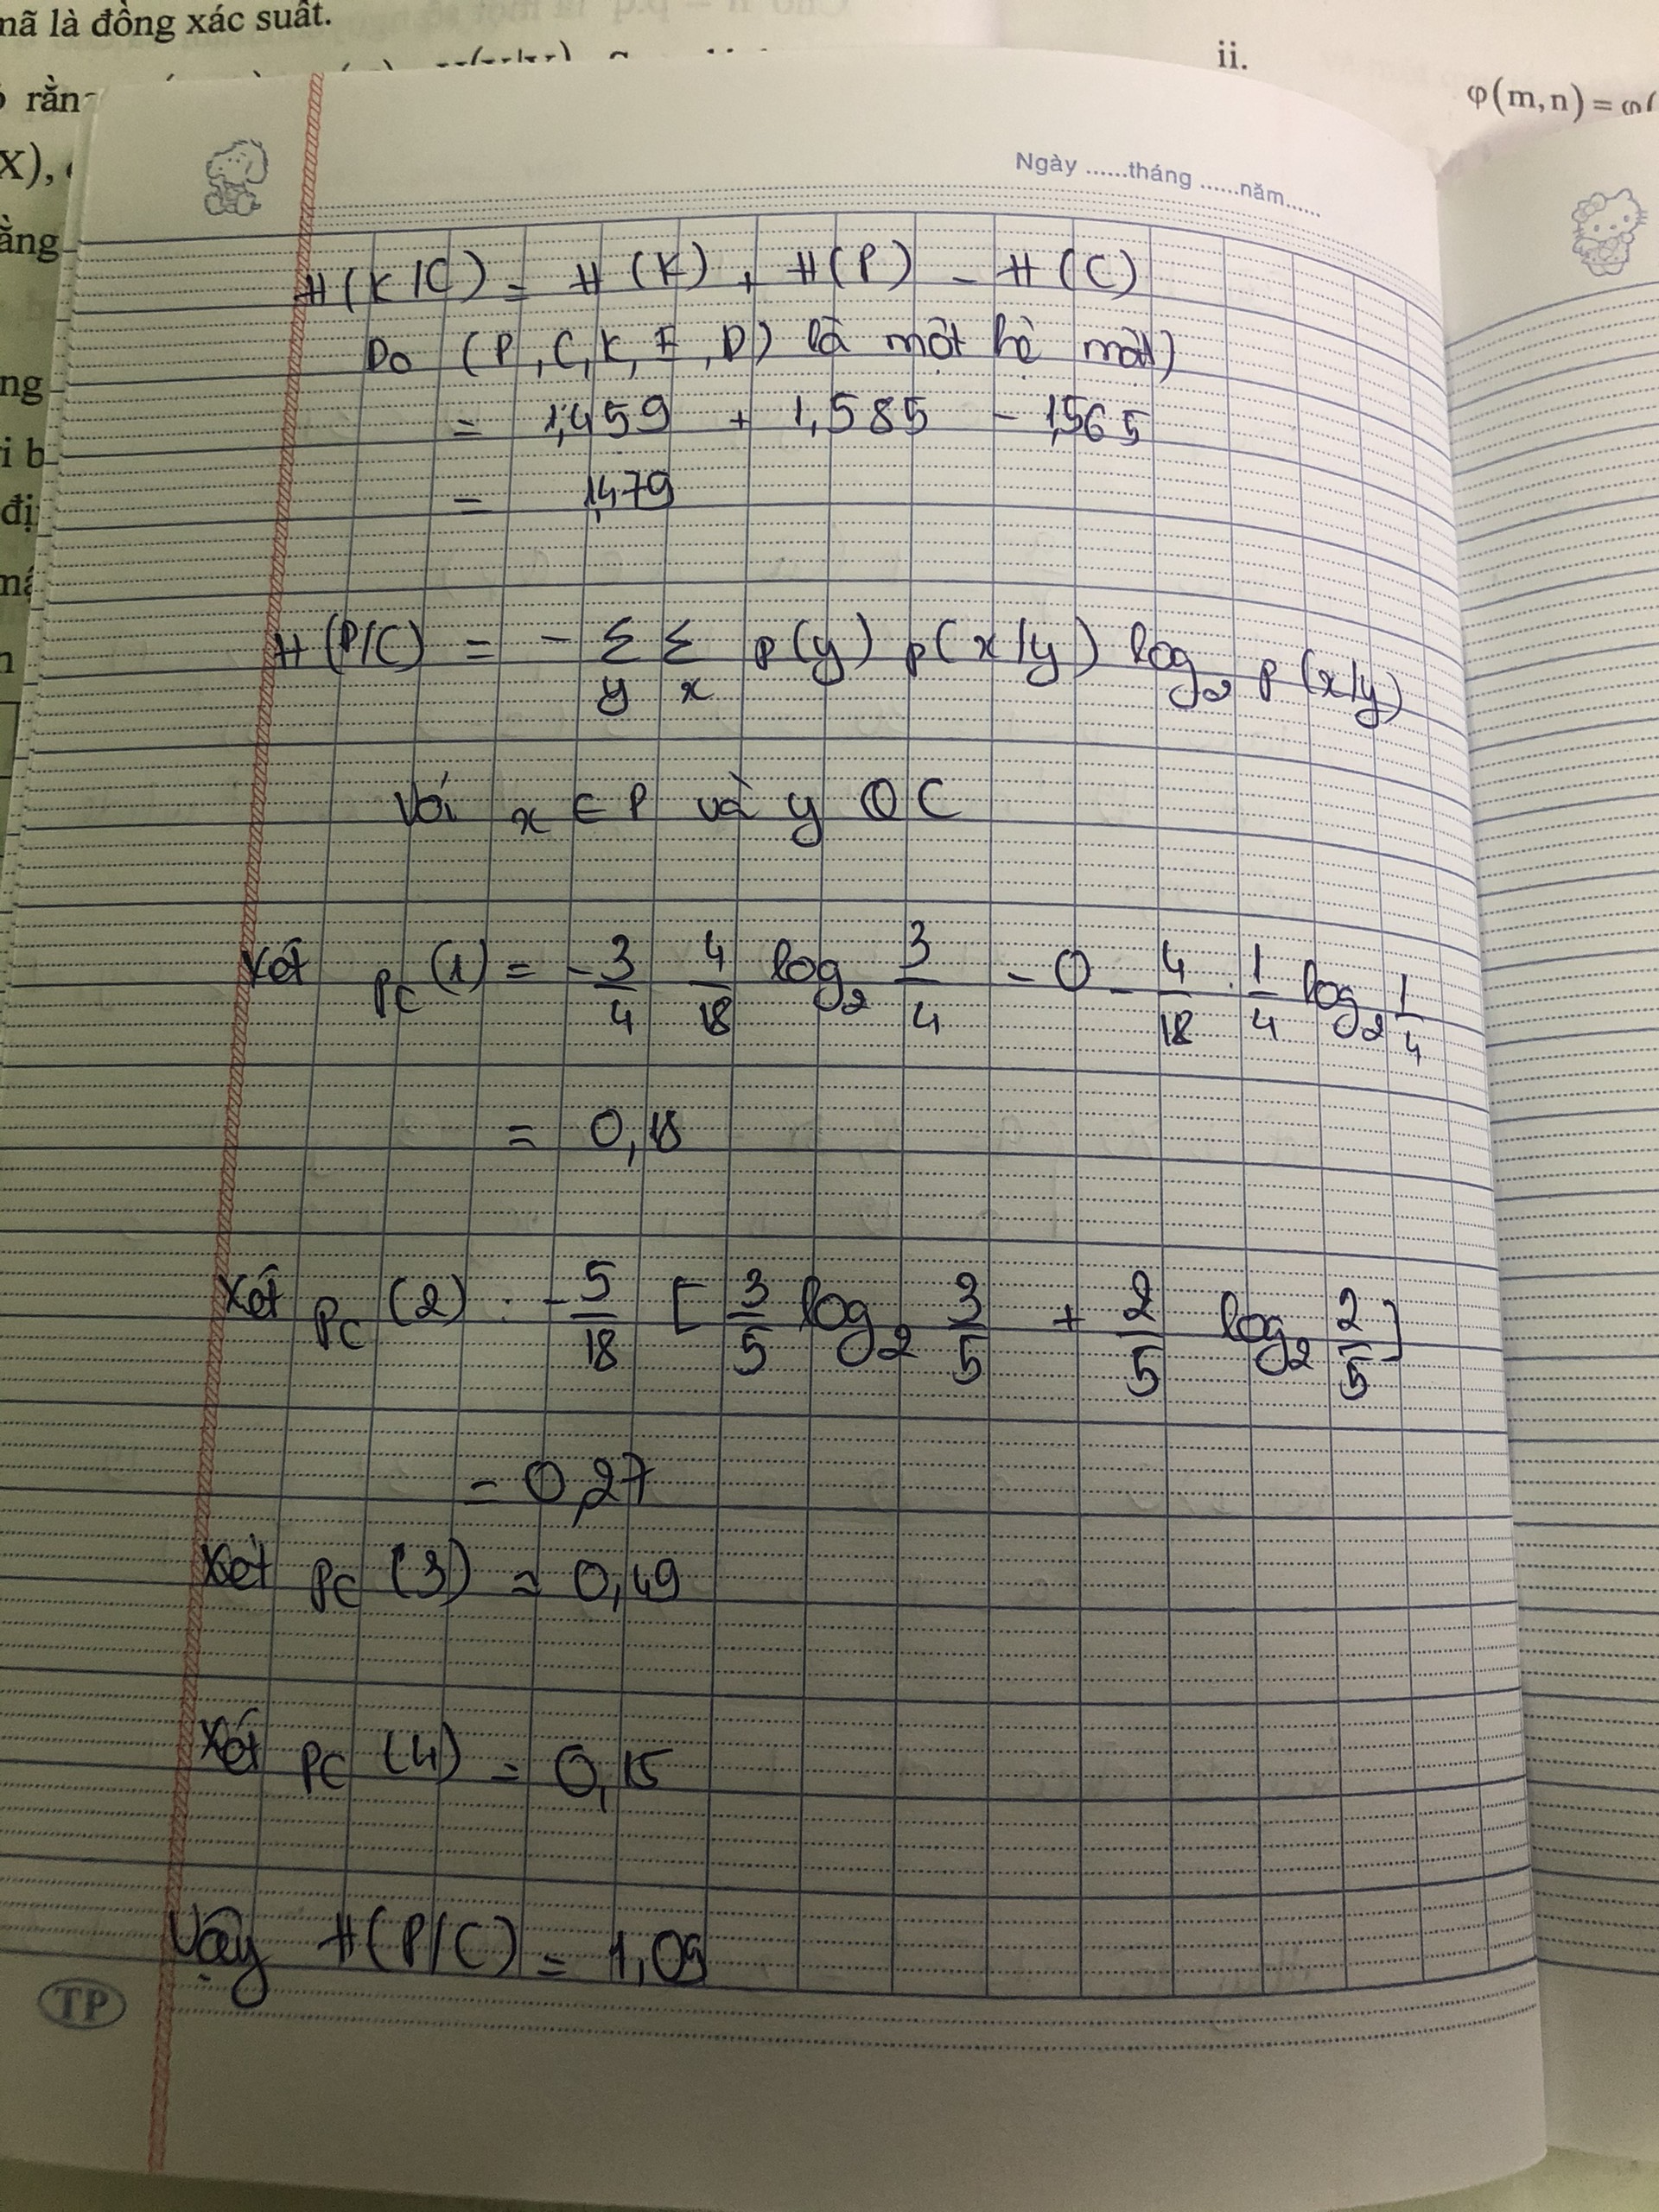 mã là đồng xác suất.
ii.
rằn
φ(m,n) = φ(
X),
Ngày ......tháng ......năm......
ằng
H(K/C) = H(K) + H(P) - H(C)
Do (P, C, K, E, D) là một hệ mật)
ng
= 1,459 + 1,585 - 1,565
i b
= 1,479
đị
H(P/C) = - Σ Σ p(y) p(x/y) log₂ p(x/y)
y x
Với x ∈ P và y ∈ C
Xét PC(1) = - 3/4 4/18 log₂ 3/4 - 0 - 4/18 . 1/4 log₂ 1/4
= 0,18
Xét PC(2) : - 5/18 [ 3/5 log₂ 3/5 + 2/5 log₂ 2/5 ]
= 0,27
Xét PC(3) = 0,49
Xét PC(4) = 0,15
Vậy H(P/C) = 1,09
TP